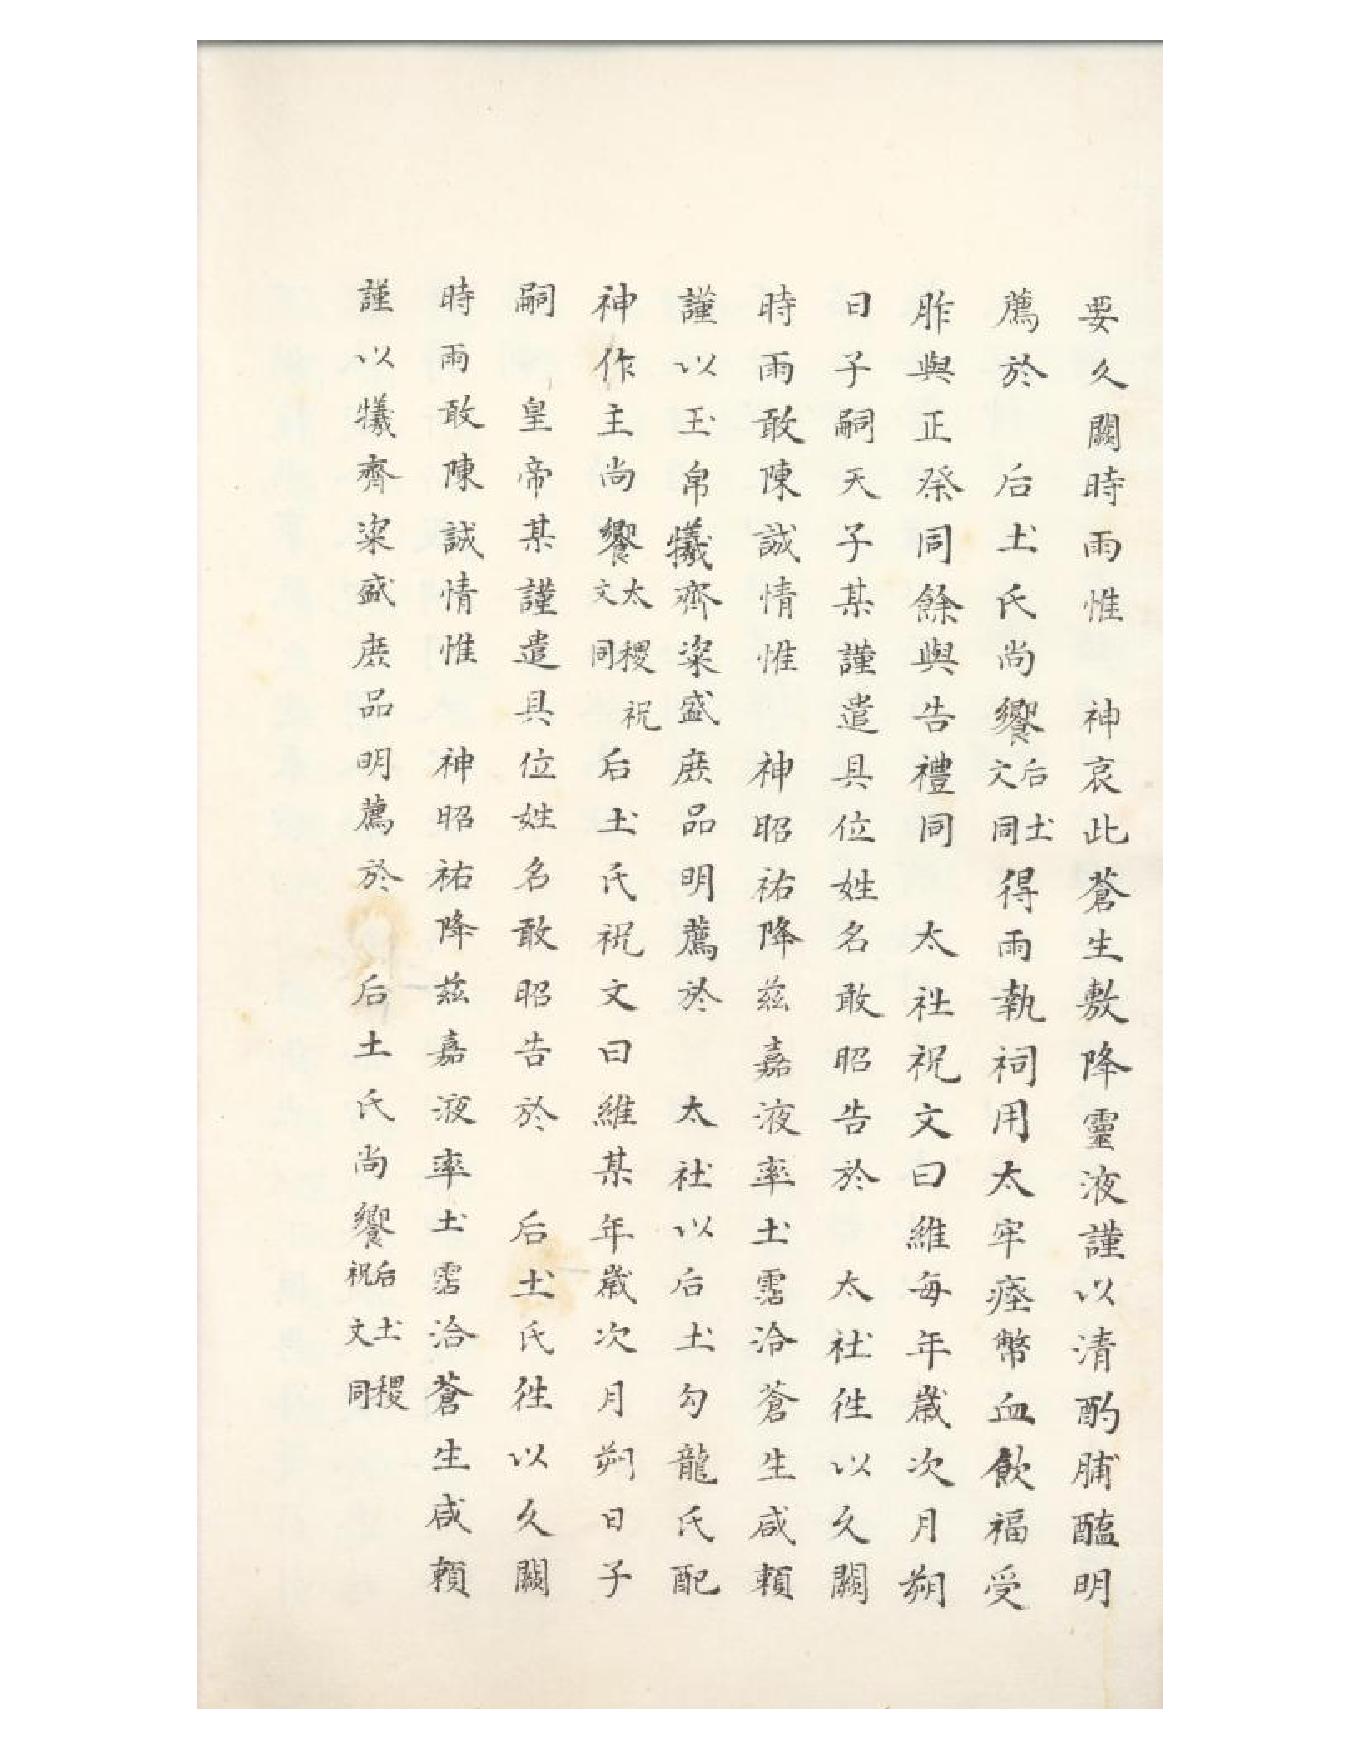 要久闕時雨惟　神哀此蒼生敷降靈液謹以清酌脯醢明
薦於　后土氏尚饗后土文同得雨執祠用太牢瘞幣血飲福受
胙與正祭同餘與告禮同　太社祝文曰維每年歲次月朔
日子嗣天子某謹遣具位姓名敢昭告於　太社徃以久闕
時雨敢陳誠情惟　神昭祐降茲嘉液率土霑洽蒼生咸頼
謹以玉帛犧齊粢盛庶品明薦於　太社以后土勾龍氏配
神作主尚饗太稷祝文同后土氏祝文曰維某年歲次月朔日子
嗣　皇帝某謹遣具位姓名敢昭告於　后土氏徃以久闕
時雨敢陳誠情惟　神昭祐降茲嘉液率土霑洽蒼生咸頼
謹以犧齊粢盛庶品明薦於　后土氏尚饗后土稷祝文同